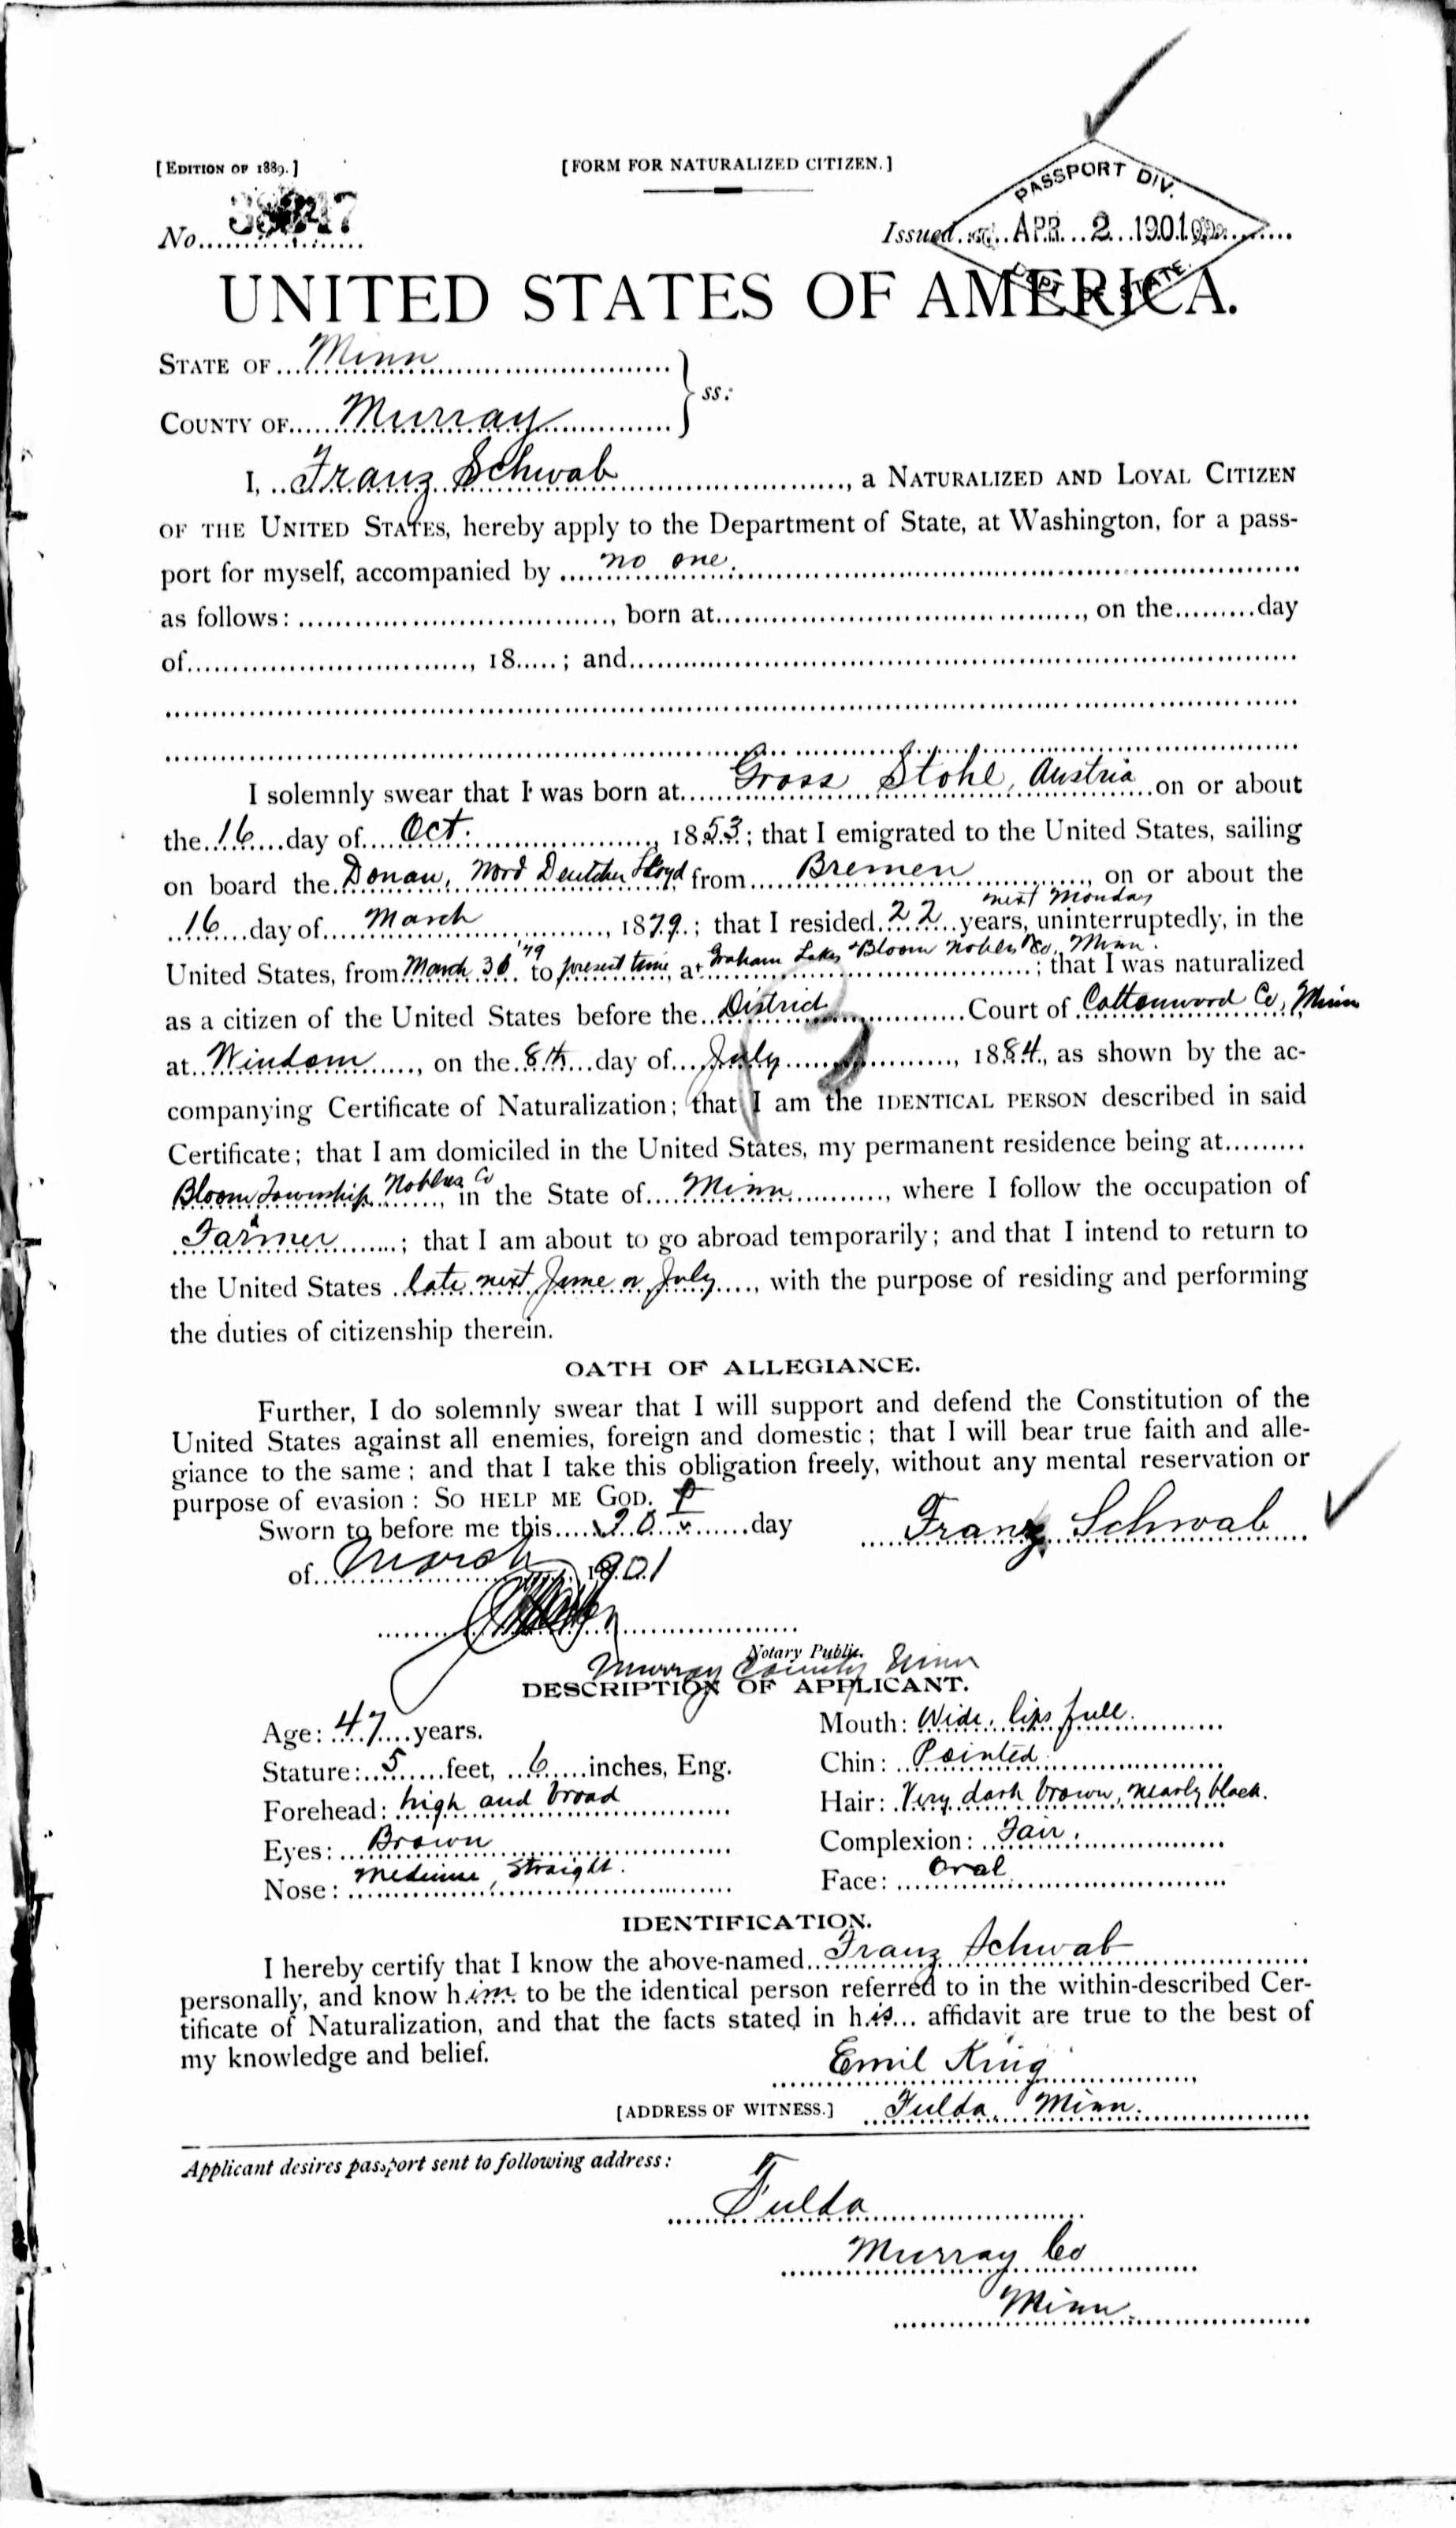 [EDITION OF 1889.]
[FORM FOR NATURALIZED CITIZEN.]
PASSPORT DIV.
No.
Issued APR 2 1901
DEPT OF STATE.
UNITED STATES OF AMERICA.
STATE OF Minn
COUNTY OF Murray } ss:
I, Franz Schwab, a NATURALIZED AND LOYAL CITIZEN
OF THE UNITED STATES, hereby apply to the Department of State, at Washington, for a pass-
port for myself, accompanied by no one.
as follows: , born at , on the day
of , 18 ; and
I solemnly swear that I was born at Gross Stohl, Austria on or about
the 16 day of Oct. , 1853; that I emigrated to the United States, sailing
on board the Donau, Nord Deutcher Lloyd from Bremen , on or about the
next Monday
16 day of March , 1879; that I resided 22 years, uninterruptedly, in the
United States, from March 30 '79 to present time, at Graham Lakes & Bloom Nobles Co, Minn. ; that I was naturalized
as a citizen of the United States before the District Court of Cottonwood Co, Minn
at Windom , on the 8th day of July , 1884, as shown by the ac-
companying Certificate of Naturalization; that I am the IDENTICAL PERSON described in said
Certificate; that I am domiciled in the United States, my permanent residence being at
Bloom Township Nobles Co, in the State of Minn , where I follow the occupation of
Farmer ; that I am about to go abroad temporarily; and that I intend to return to
the United States late next June or July , with the purpose of residing and performing
the duties of citizenship therein.
OATH OF ALLEGIANCE.
Further, I do solemnly swear that I will support and defend the Constitution of the
United States against all enemies, foreign and domestic; that I will bear true faith and alle-
giance to the same; and that I take this obligation freely, without any mental reservation or
purpose of evasion: SO HELP ME GOD.
Sworn to before me this 20 day
Franz Schwab
of March 1901
Notary Public.
Murray County Minn
DESCRIPTION OF APPLICANT.
Age: 47 years.
Mouth: Wide, lips full.
Stature: 5 feet, 6 inches, Eng.
Chin: Pointed
Forehead: high and broad
Hair: Very dark brown, nearly black.
Eyes: Brown
Complexion: Fair.
Nose: Medium, straight.
Face: Oval
IDENTIFICATION.
I hereby certify that I know the above-named Franz Schwab
personally, and know him to be the identical person referred to in the within-described Cer-
tificate of Naturalization, and that the facts stated in his affidavit are true to the best of
my knowledge and belief.
Emil King
[ADDRESS OF WITNESS.] Fulda, Minn.
Applicant desires passport sent to following address:
Fulda
Murray Co
Minn.